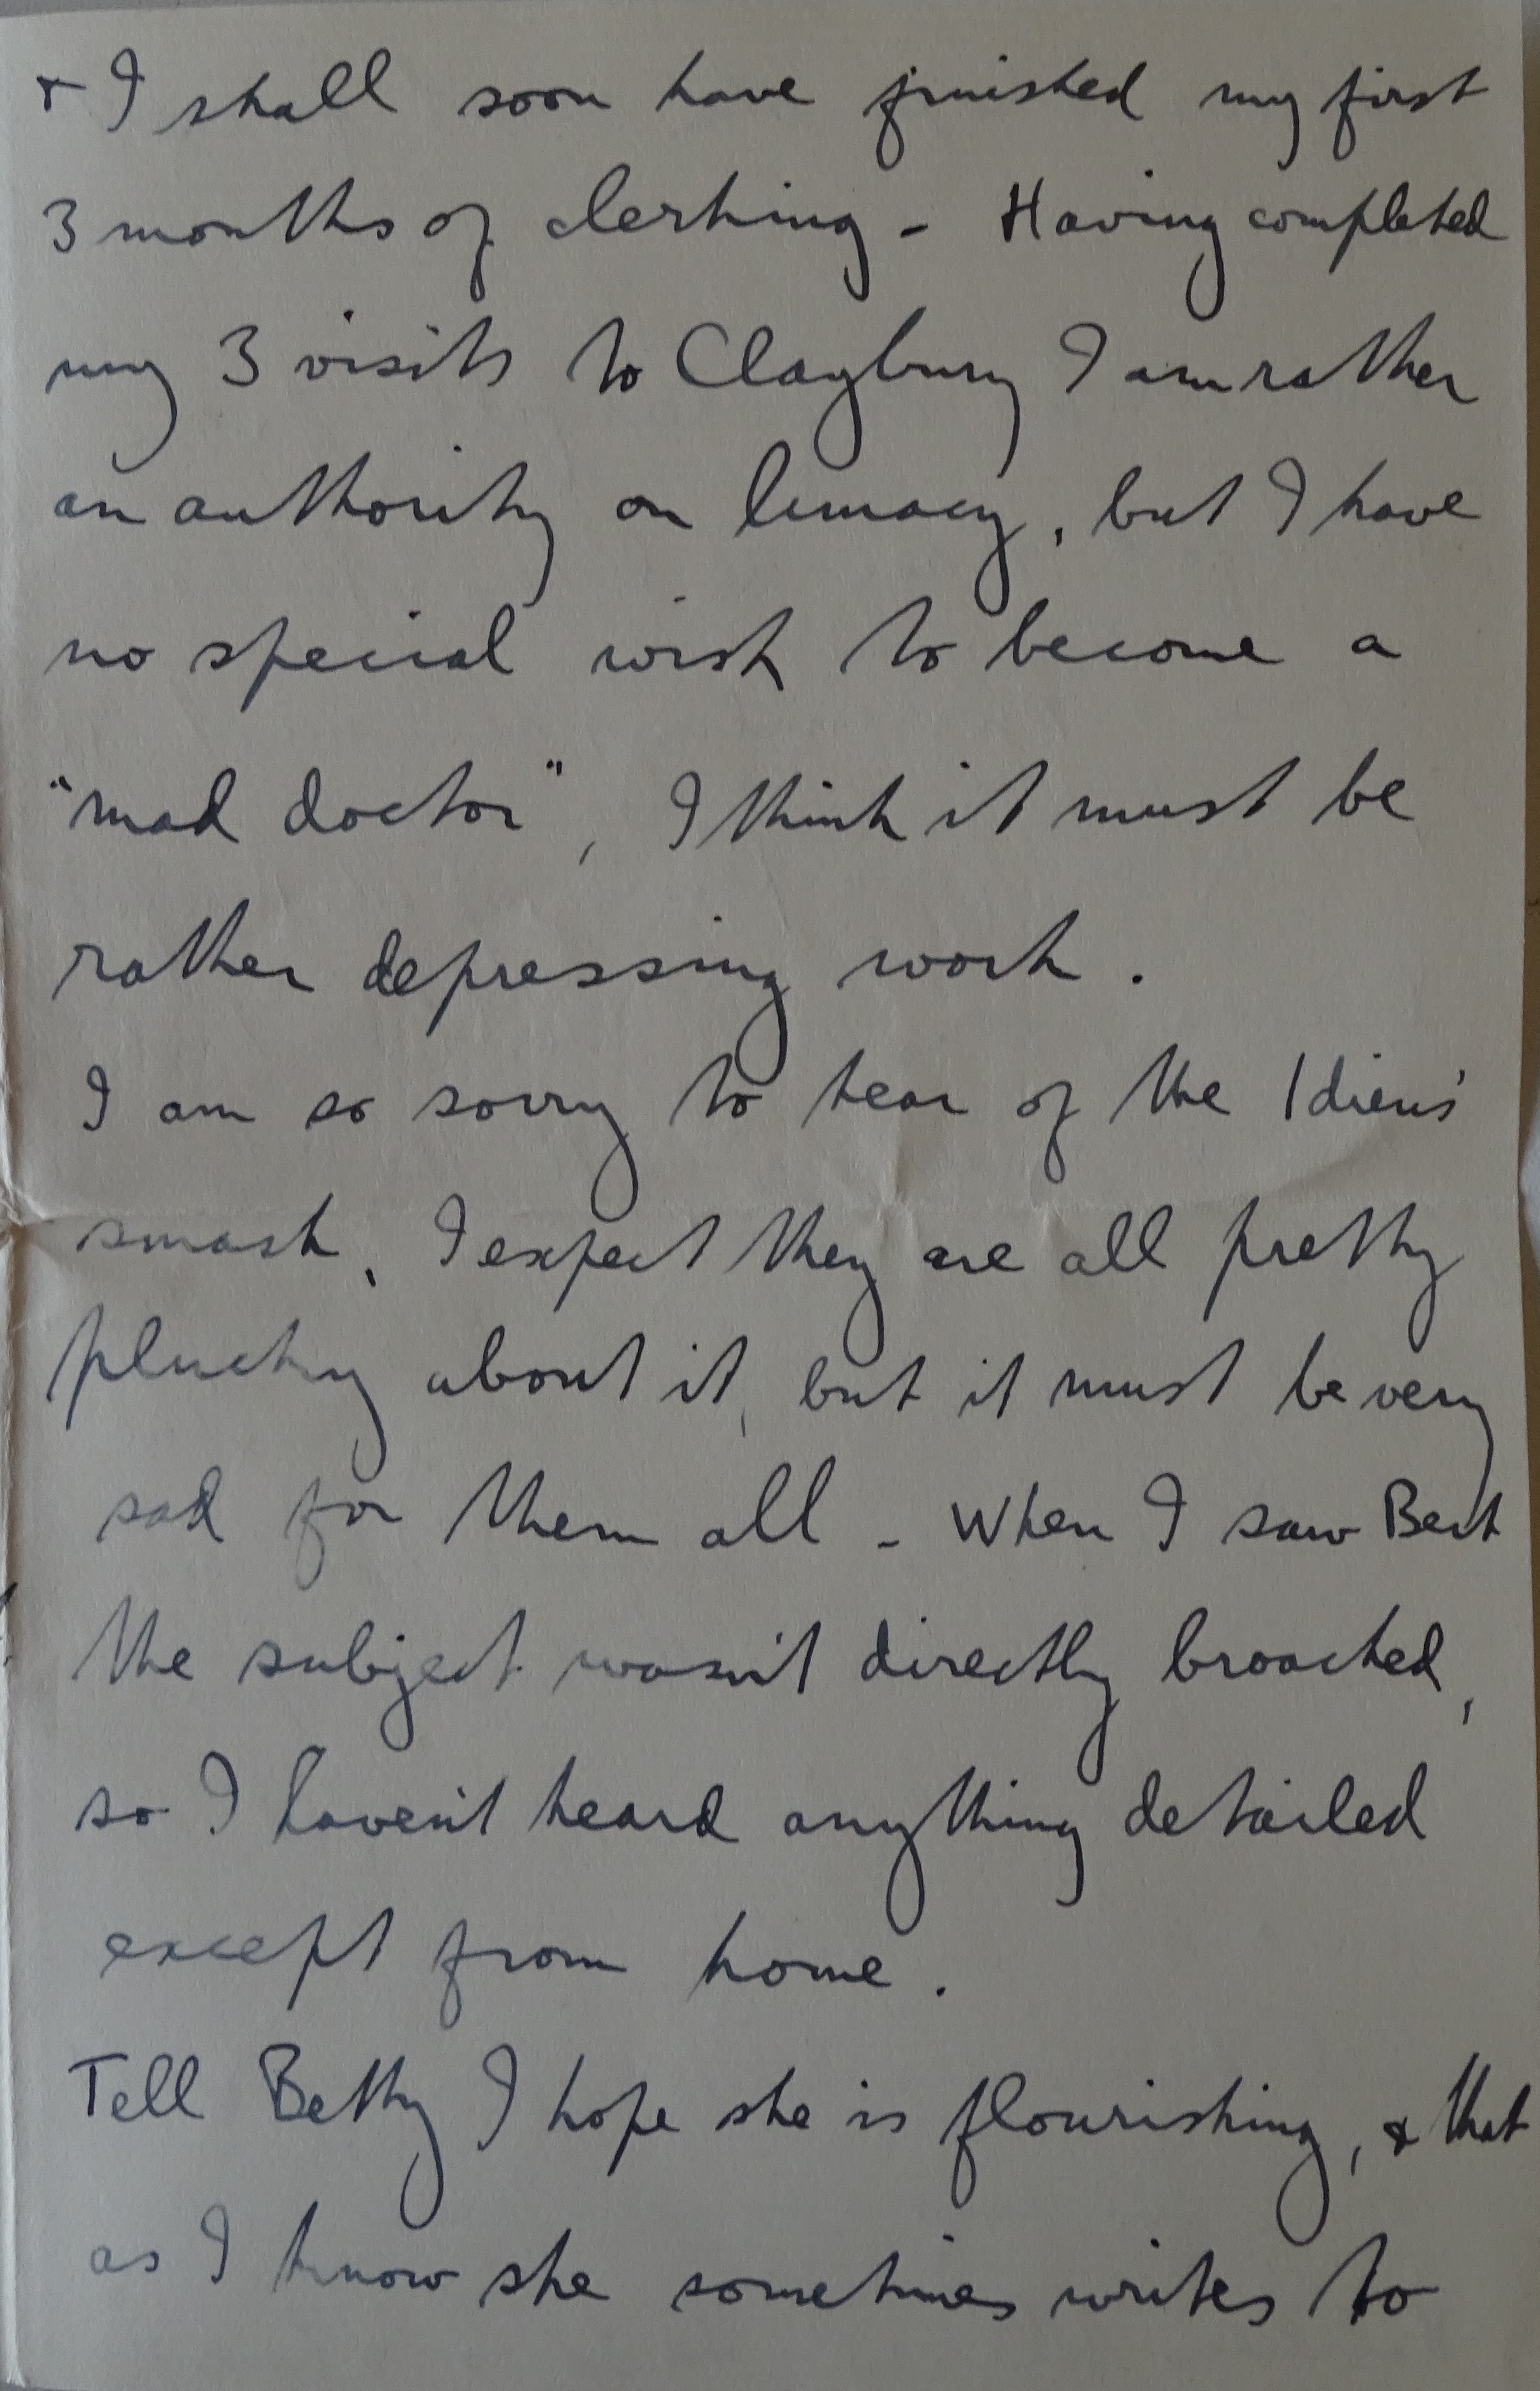 & I shall soon have finished my first
3 months of clerking - Having completed
my 3 visits to Claybury I am rather
an authority on lunacy, but I have
no special wish to become a
"mad doctor", I think it must be
rather depressing work.
I am so sorry to hear of the Idiens'
smash, I expect they are all pretty
plucky about it, but it must be very
sad for them all - When I saw Bert
the subject wasn't directly broached,
so I haven't heard anything detailed
except from home.
Tell Betty I hope she is flourishing, & that
as I know she sometimes writes to